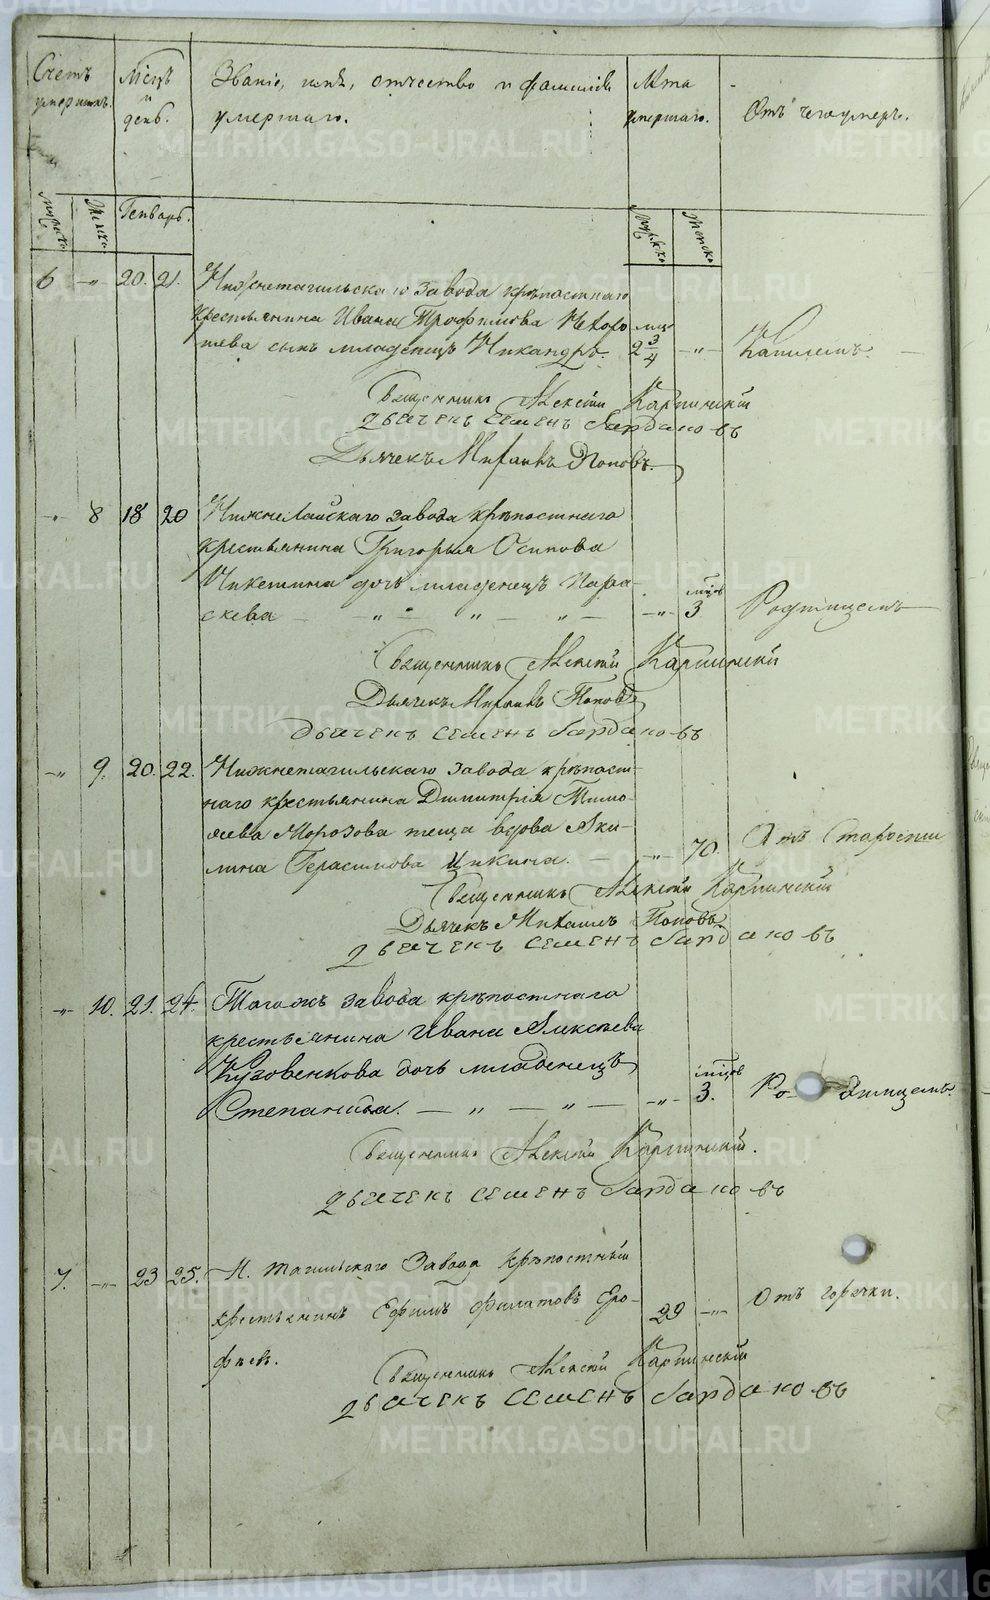 Счетъ умершихъ.
Мѣсяцъ и день.
Званіе, имя, отчество и фамилія умершаго.
Лѣта умершаго.
Отъ чего умеръ.
Мужск. Женск. Генварь. Мужско Женско
6 -„- 20. 21. Нижнетагильскаго завода крѣпостнаго
крестьянина Ивана Трофимова
сынъ младенецъ Никандръ. 2 3/4 -„- Кашлемъ.
Священникъ Алексѣй Карпинскій
Дьячекъ Семенъ Бардаковъ
Дьячекъ Михаилъ Поповъ.
-„- 8 18 20 Нижнелайскаго завода крѣпостнаго
крестьянина Григорья Осипова
Чикетина дочь младенецъ Пара-
скева -„- 3 мѣсцовъ Родимцемъ
Священникъ Алексѣй Карпинскій
Дьячекъ Михаилъ Поповъ
Дьячекъ Семенъ Бардаковъ
-„- 9. 20. 22. Нижнетагильскаго завода крѣпост-
наго крестьянина Димитрія Тимо-
ѳеева Морозова теща вдова Аки-
лина Герасимова -„- 70. Отъ Старости
Священникъ Алексѣй Карпинскій
Дьячекъ Михаилъ Поповъ
Дьячекъ Семенъ Бардаковъ
-„- 10. 21. 24. Тогожъ завода крѣпостнаго
крестьянина Ивана Алексѣева
Кузовенкова дочь младенецъ
Степанида. -„- 3. мѣсцов Родимцемъ.
Священникъ Алексѣй Карпинскій.
Дьячекъ Семенъ Бардаковъ
7. -„- 23 25. Н. Тагильскаго Завода Крѣпостный
крестьянинъ Ефимъ Филатовъ Еро-
фѣев. 29 -„- Отъ горячки.
Священникъ Алексѣй Карпинскій
Дьячекъ Семенъ Бардаковъ
METRIKI.GASO-URAL.RU